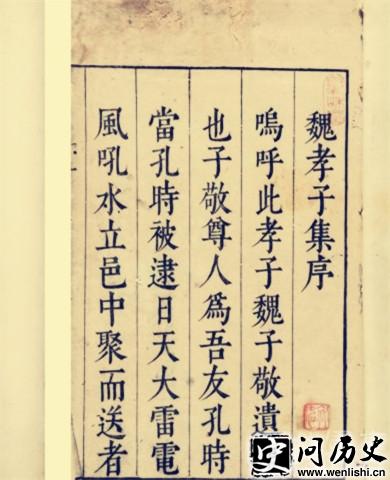 魏孝子集序
嗚呼此孝子魏子敬遺
也子敬尊人為吾友孔時
當孔時被逮日天大雷電
風吼水立邑中聚而送者
史 问历史
www.wenlishi.cn